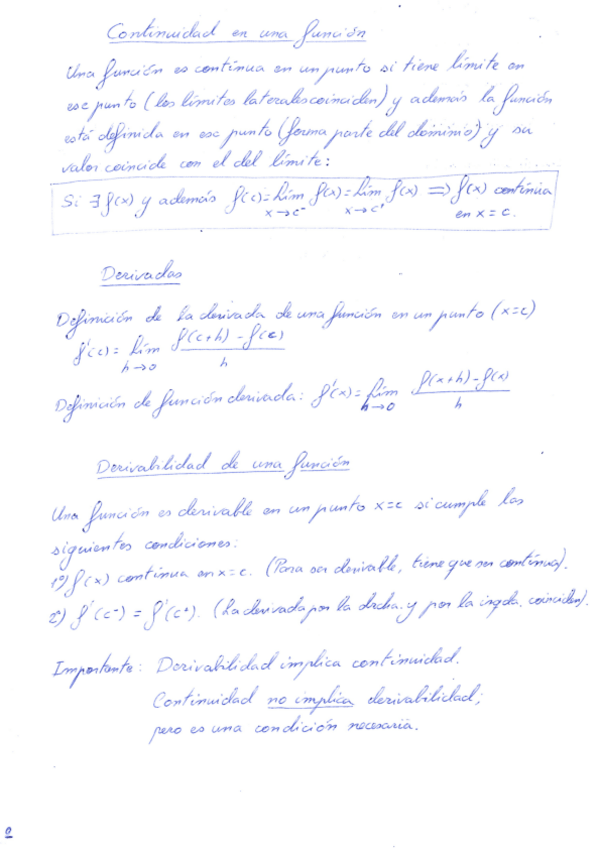 Continuidad en una función
Una función es contínua en un punto si tiene límite en
ese punto (los límites laterales coinciden) y además la función
está definida en ese punto (forma parte del dominio) y su
valor coincide con el del límite:
Si ∃ f(x) y además f(c)= lím f(x)= lím f(x) ⇒ f(x) contínua
x→c⁻ x→c⁺ en x = c.
Derivadas
Definición de la derivada de una función en un punto (x=c)
f'(c) = lím f(c+h) - f(c)
h→0 h
Definición de función derivada: f'(x) = lím f(x+h) - f(x)
h→0 h
Derivabilidad de una función
Una función es derivable en un punto x=c si cumple las
siguientes condiciones:
1º) f(x) contínua en x=c. (Para ser derivable, tiene que ser contínua).
2º) f'(c⁻) = f'(c⁺). (La derivada por la drcha. y por la izqda. coinciden).
Importante: Derivabilidad implica continuidad.
Continuidad no implica derivabilidad;
pero es una condición necesaria.